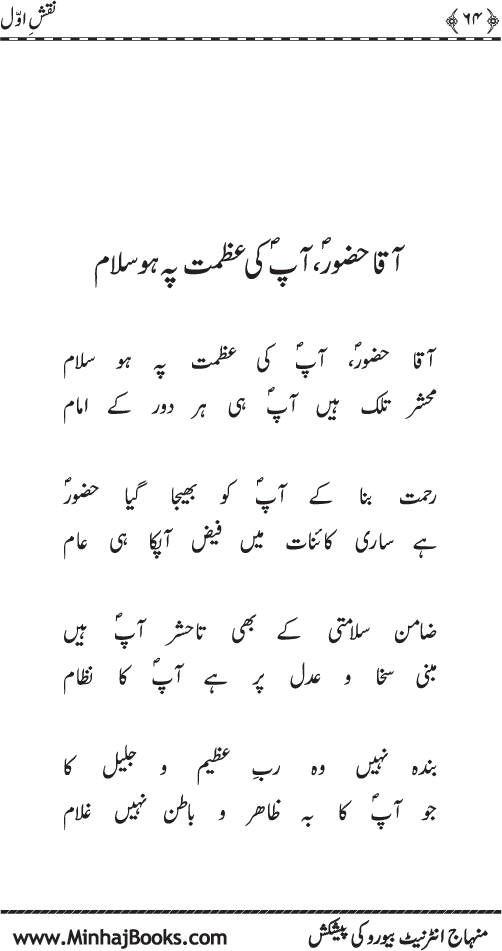 ﴿۶۴﴾ نقشِ اوّل
آقا حضورؐ، آپؐ کی عظمت پہ ہو سلام
آقا حضورؐ، آپؐ کی عظمت پہ ہو سلام
محشر تلک ہیں آپؐ ہی ہر دور کے امام
رحمت بنا کے آپؐ کو بھیجا گیا حضورؐ
ہے ساری کائنات میں فیض آپکا ہی عام
ضامن سلامتی کے بھی تاحشر آپؐ ہیں
مبنی سخا و عدل پر ہے آپؐ کا نظام
بندہ نہیں وہ ربِ عظیم و جلیل کا
جو آپؐ کا بہ ظاھر و باطن نہیں غلام
منہاج انٹرنیٹ بیورو کی پیشکش www.MinhajBooks.com